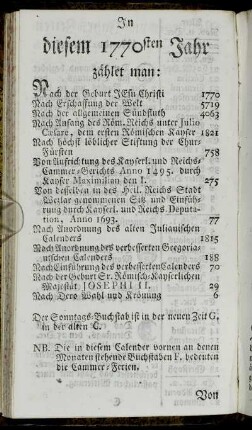 In
diesem 1770sten Jahr
zählet man:
Nach der Geburt JEsu Christi 1770
Nach Erschaffung der Welt 5719
Nach der allgemeinen Sündfluth 4063
Nach Anfang des Röm. Reichs unter Julio
Cæsare, dem ersten Römischen Kayser 1821
Nach höchst löblicher Stiftung der Chur-
Fürsten 758
Von Aufrichtung des Kayserl. und Reichs-
Cammer-Gerichts Anno 1495. durch
Kayser Maximilian den I. 275
Von desselben in des Heil. Reichs Stadt
Wetzlar genommenen Sitz und Einfüh-
rung durch Kayserl. und Reichs Deputa-
tion, Anno 1693. 77
Nach Anordnung des alten Julianischen
Calenders 1815
Nach Anordnung des verbesserten Gregoria-
nischen Calenders 188
Nach Einführung des verbesserten Calenders 70
Nach der Geburt Sr. Römisch-Kayserlichen
Majestät JOSEPHI II. 29
Nach Dero Wahl und Krönung 6
Der Sonntags-Buchstab ist in der neuen Zeit G,
in der alten C.
NB. Die in diesem Calender vornen an denen
Monaten stehende Buchstaben F. bedeuten
die Cammer-Ferien.
Von